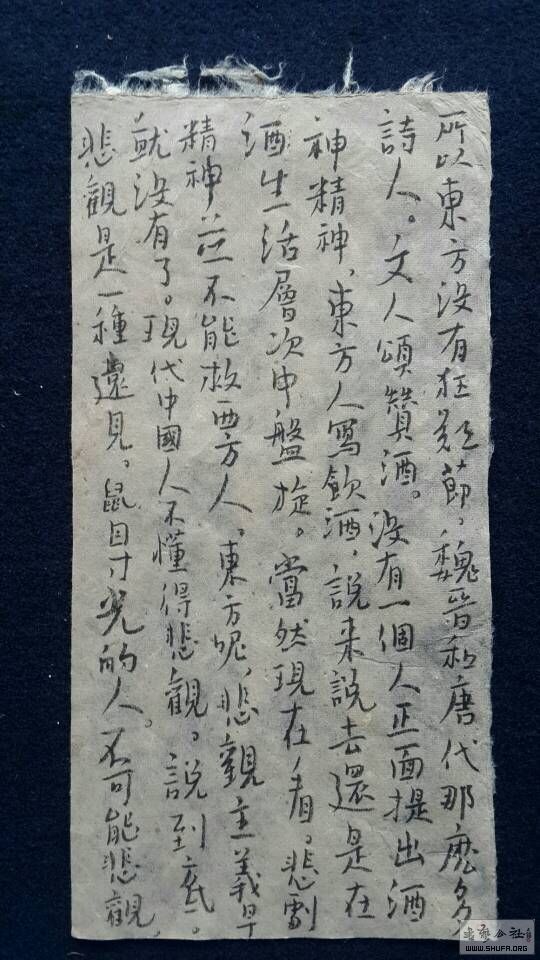 所以東方没有狂欢節。魏晋和唐代那麽多
詩人。文人頌贊酒。没有一個人正面提出酒
神精神，東方人寫飲酒，説来説去還是在
酒生活層次中盤旋。當然現在看。悲劇
精神並不能救西方人。東方呢，悲觀主義早
就没有了。現代中國人不懂得悲觀。説到底。
悲觀是一種遠見。鼠目寸光的人。不可能悲觀
書法公社
WWW.SHUFA.ORG